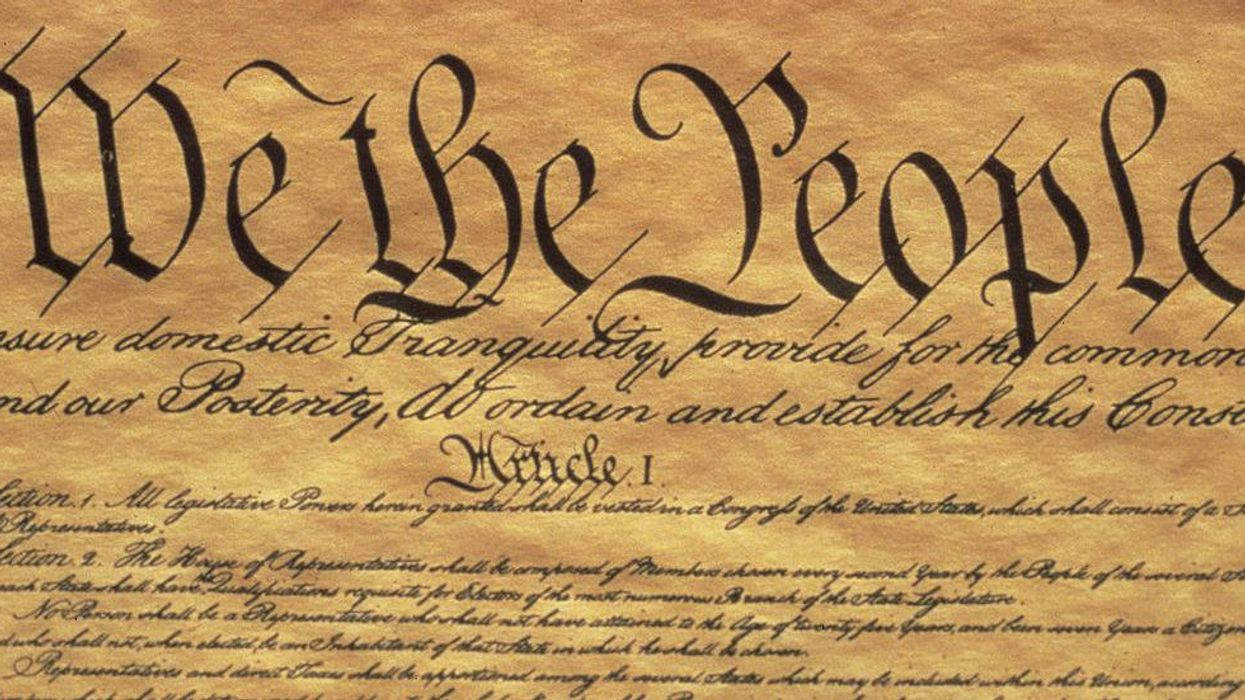 We the People
nsure domestic Tranquility, provide for the common
nd our Posterity, do ordain and establish this Const
Article. I.
ection. 1. All legislative Powers herein granted shall be vested in a Congress of the United States, which shall consist of a
Representatives.
ection. 2. The House of Representatives shall be composed of Members chosen every second Year by the People of the several
each State shall have the Qualifications requisite for Electors of the most numerous Branch of the State Legislature.
No Person shall be a Representative who shall not have attained to the Age of twenty five Years, and been seven Years a Citizen
d who shall not, when elected, be an Inhabitant of that State in which he shall be chosen.
Representatives and direct Taxes shall be apportioned among the several States which may be included within this Union, according